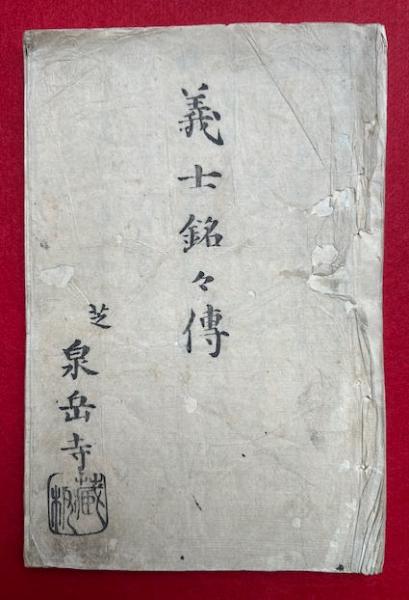 義士銘々傳
芝
泉岳寺
藏板